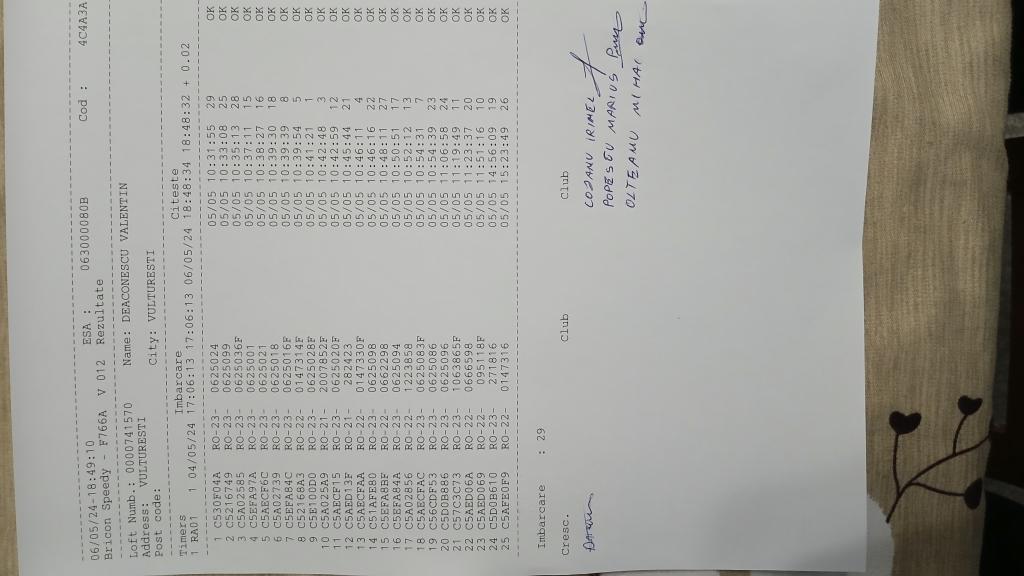 06/05/24-18:49:10 ESA : 063000080B Cod : 4C4A3A
Bricon Speedy - F766A V 012 Rezultate
Loft Numb.: 0000741570 Name: DEACONESCU VALENTIN
Address: VULTURESTI City: VULTURESTI
Post code:
Timers Imbarcare Citeste
1 RA01 1 04/05/24 17:06:13 17:06:13 06/05/24 18:48:34 18:48:32 + 0.02
1 C530F04A RO-23- 0625024 05/05 10:31:55 29 OK
2 C5216749 RO-23- 0625099 05/05 10:33:08 25 OK
3 C5A02585 RO-23- 0625036F 05/05 10:35:13 28 OK
4 C5EFA97A RO-23- 0625001 05/05 10:37:11 15 OK
5 C5AECF6C RO-23- 0625021 05/05 10:38:27 16 OK
6 C5A02739 RO-23- 0625018 05/05 10:39:30 18 OK
7 C5EFA84C RO-23- 0625016F 05/05 10:39:39 8 OK
8 C52168A3 RO-22- 0147314F 05/05 10:39:54 5 OK
9 C5E100D0 RO-23- 0625028F 05/05 10:41:21 1 OK
10 C5A025A9 RO-21- 2007852F 05/05 10:42:48 3 OK
11 C5AECF15 RO-23- 0625020F 05/05 10:42:59 12 OK
12 C5AED13F RO-21- 282423 05/05 10:45:44 21 OK
13 C5AECFAA RO-22- 0147330F 05/05 10:46:11 4 OK
14 C51AFE80 RO-23- 0625098 05/05 10:46:16 22 OK
15 C5EFA8BF RO-22- 0662298 05/05 10:48:11 27 OK
16 C5EFA84A RO-23- 0625094 05/05 10:50:51 17 OK
17 C5A02856 RO-22- 1223859 05/05 10:52:12 13 OK
18 C5AECFAC RO-23- 0625083F 05/05 10:54:31 7 OK
19 C56CDF53 RO-23- 0625086 05/05 10:54:39 23 OK
20 C5D0B886 RO-23- 0625096 05/05 11:06:58 24 OK
21 C57C3C73 RO-21- 1063865F 05/05 11:19:49 11 OK
22 C5AED06A RO-22- 0666598 05/05 11:23:37 20 OK
23 C5AED069 RO-22- 095118F 05/05 11:51:16 10 OK
24 C5D0B610 RO-23- 271816 05/05 14:56:09 19 OK
25 C5AFE0F9 RO-22- 0147316 05/05 15:23:49 26 OK
Imbarcare : 29
Cresc. Club Club
COZANU IRINEL
POPESCU MARIUS
OLTEANU MIHAI